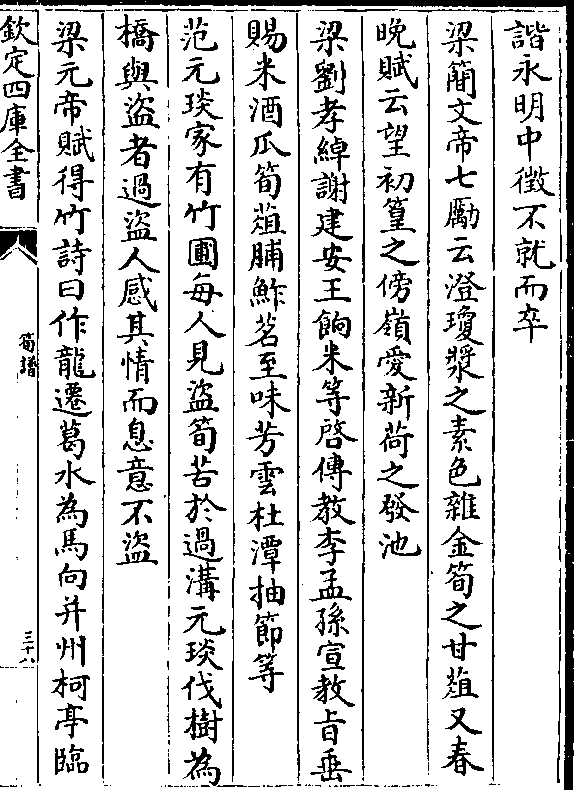 諧永明中徴不就而卒
梁簡文帝七勵云澄瓊漿之素色雜金筍之甘菹又春
晚賦云望初篁之傍嶺愛新荷之發池
梁劉孝綽謝建安王餉米等啓傳教李孟孫宣教旨垂
賜米酒瓜筍菹脯鮓茗至味芳雲杜潭抽節等
范元琰家有竹圃每人見盜筍苦於過溝元琰伐樹為
橋與盜者過盜人感其情而息意不盜
梁元帝賦得竹詩曰作龍遷葛水為馬向并州柯亭臨
欽定四庫全書
筍譜
三十八